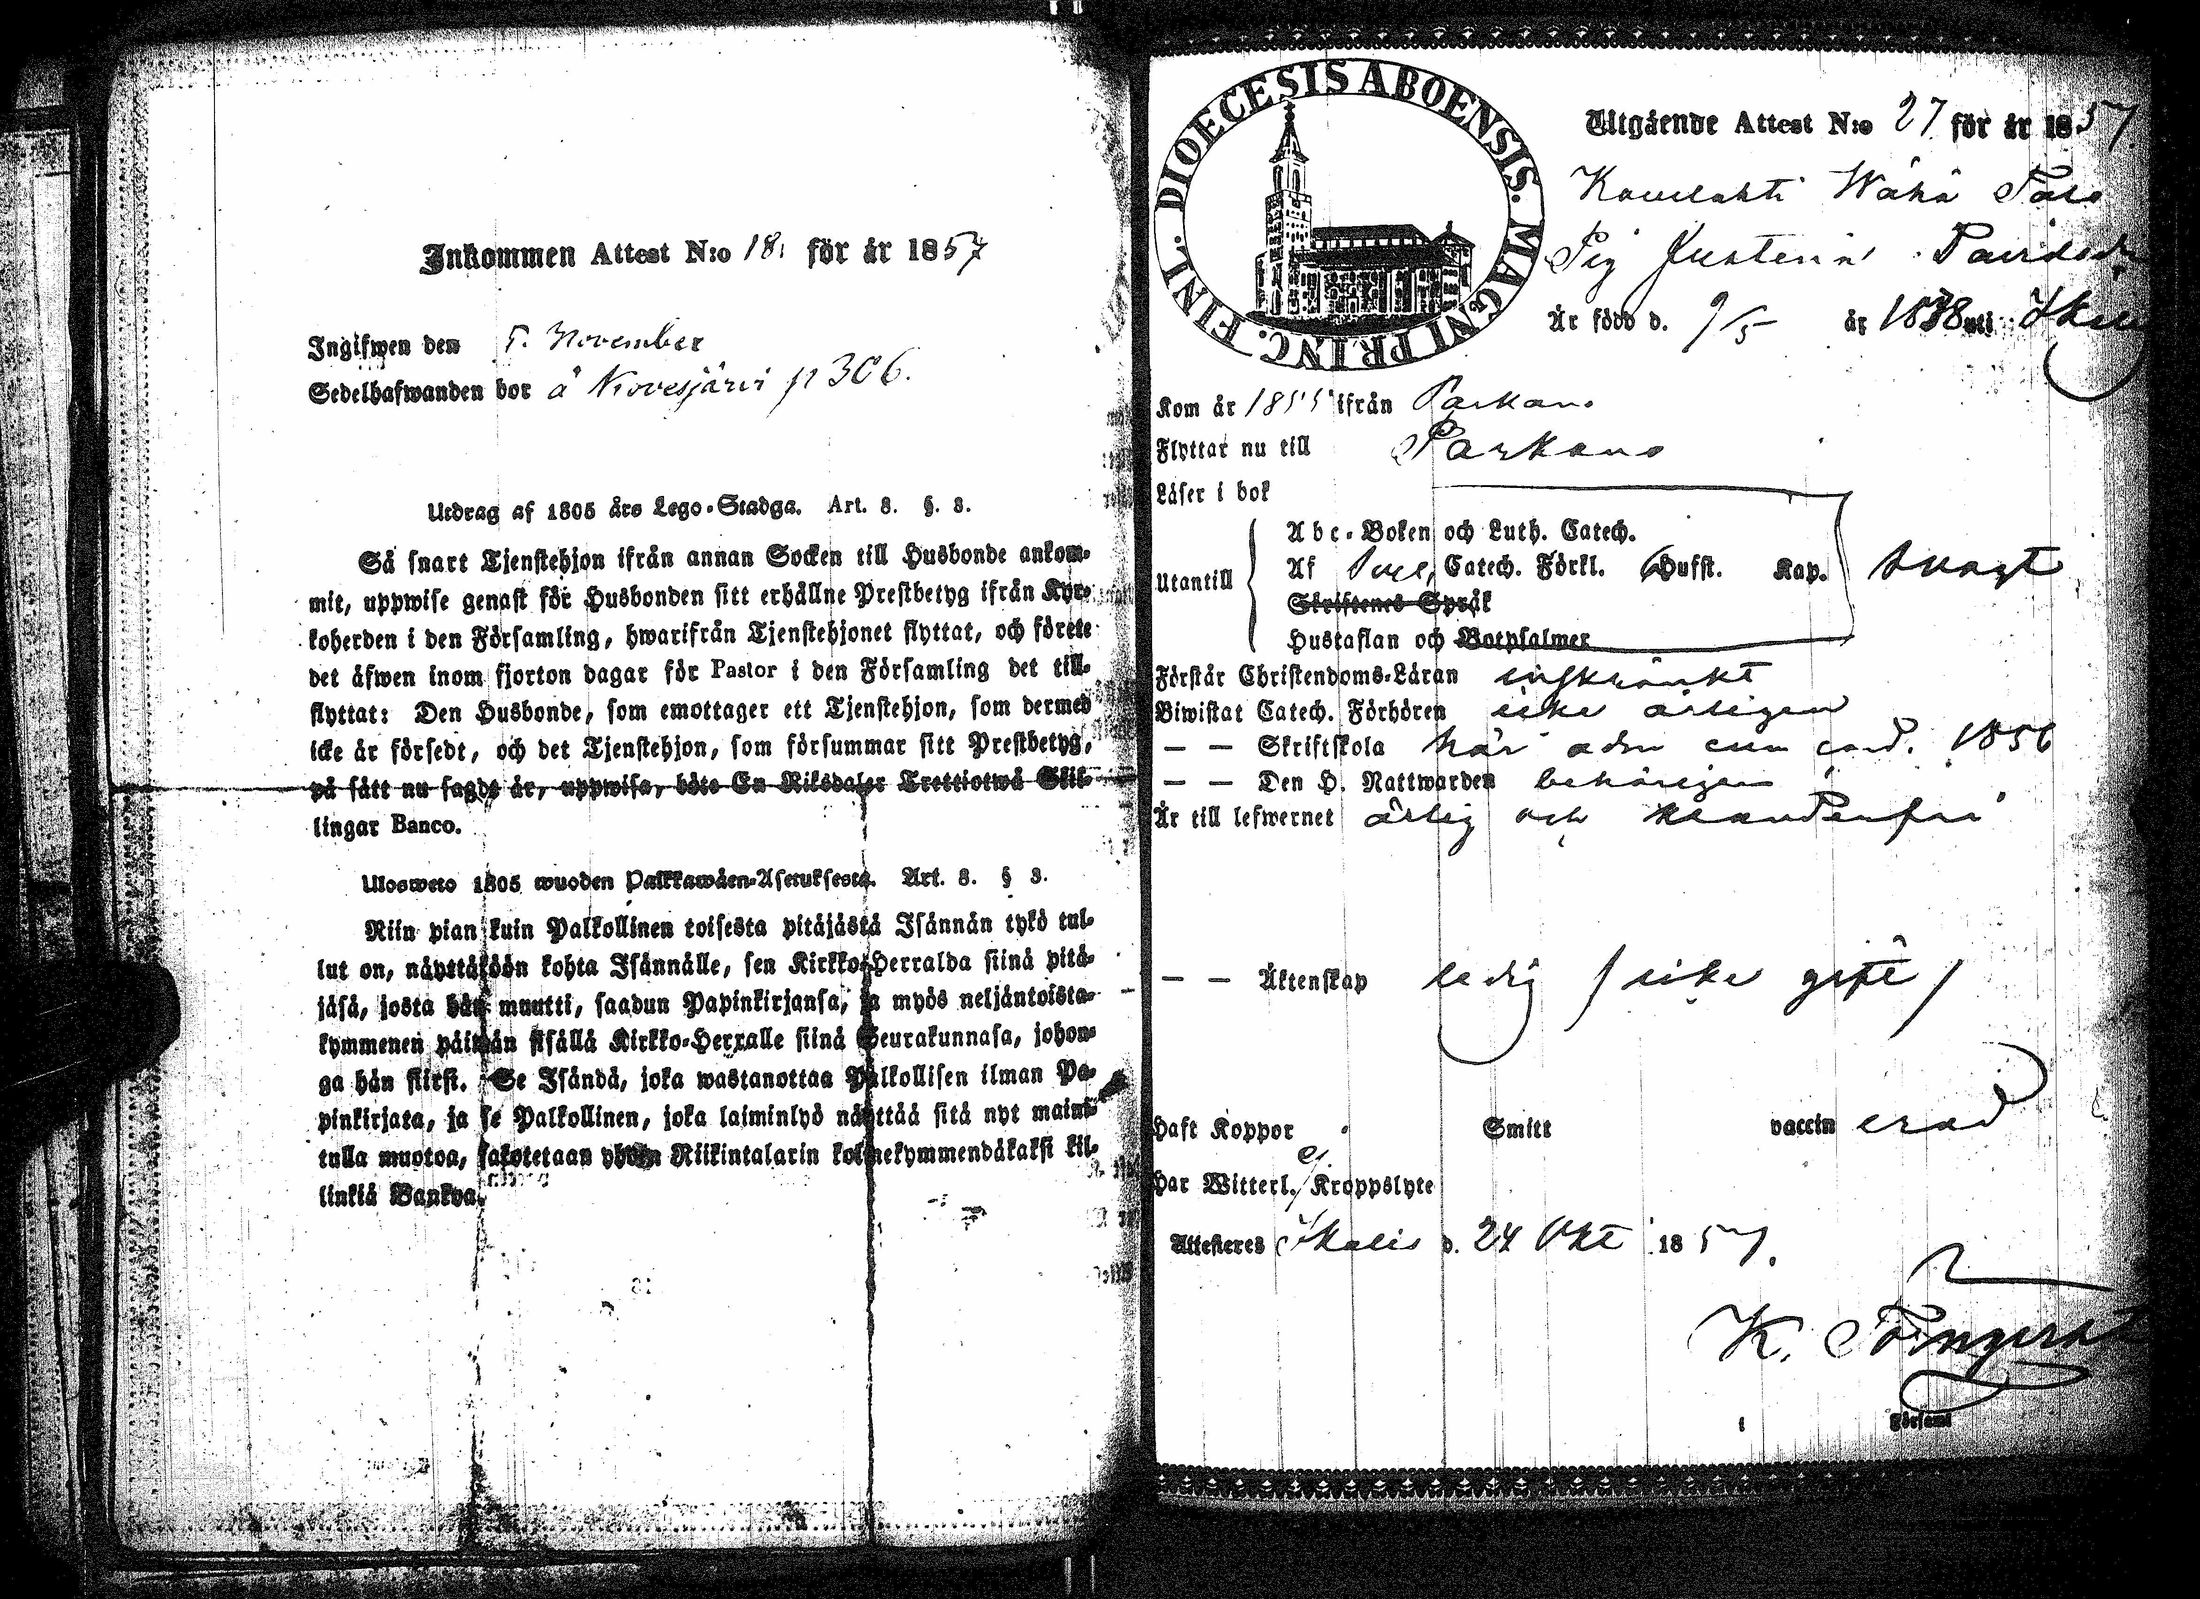 Inkommen Attest N:o 18 för år 1857
Ingifwen den 5. November
Sedelhafwanden bor å Kovesjärvi p 306.
Utdrag af 1805 års Lego-Stadga. Art. 8. §. 3.
Så snart Tjenstehjon ifrån annan Socken till Husbonde ankom-
mit, uppwise genast för Husbonden sitt erhållne Prestbetyg ifrån Kyr-
koherden i den Församling, hwarifrån Tjenstehjonet flyttat, och förete
det äfwen inom fjorton dagar för Pastor i den Församling det till-
flyttat: Den Husbonde, som emottager ett Tjenstehjon, som dermed
icke är försedt, och det Tjenstehjon, som försummar sitt Prestbetyg,
på sätt nu sagdt är, uppwisa, böte En Riksdaler Trettiotwå Skil-
lingar Banco.
Uloswето 1805 wuoden Palkkawäen-Asetuksesta. Art. 8. § 3.
Niin pian kuin Palkollinen toisesta pitäjästä Isännän tykö tul-
lut on, näyttäköön kohta Isännälle, sen Kirkko-Herralda siinä pitä-
jäsä, josta hän muutti, saadun Papinkirjansa, ja myös neljäntoista-
kymmenen päiwän sisällä Kirkko-Herralle siinä Seurakunnasa, johon-
ga hän siirsi. Se Isändä, joka wastanottaa Palkollisen ilman Pa-
pinkirjata, ja se Palkollinen, joka laiminlyö näyttää sitä nyt maini-
tulla muotoa, sakotetaan yhden Riikintalarin kolmekymmendäkaksi kil-
linkiä Bankoa.
DIOECESIS ABOENSIS. MAGNI PRINC. FINL.
Utgående Attest N:o 27 för år 1857.
Wähä
Pig Justina
Är född d. 9/5 år 1838 uti
Kom år 1855 ifrån Parkano
Flyttar nu till Parkano
Läser i bok
Abc-Boken och Luth. Catech.
Utantill Af Catech. Förkl. 6 Hufst. Kap. svagt
Skriftenes Språk
Hustaflan och Botpsalmer
Förstår Christendoms-Läran inskränkt
Biwistat Catech. Förhören icke årligen
— — Skriftskola här 1856
— — Den H. Nattwarden behörigen
Är till lefwernet ärlig och klanderfri
— — Äktenskap ledig / icke gift /
Haft Koppor Smitt vaccinerad
Har Witterl. ej Kroppslyte
Attesteras Ikalis d. 24 Okt 1857.
K.
Församl